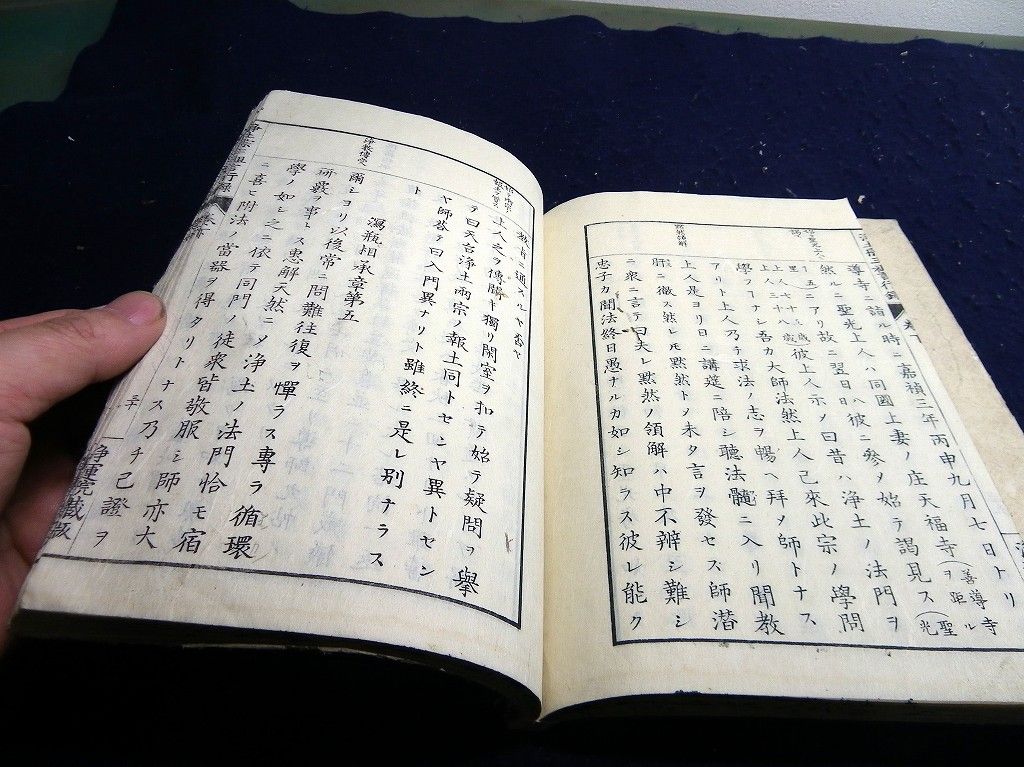 導寺ニ詣ル時ニ嘉禎三年丙申九月七日トリ
然ルニ聖光上人ハ同國上妻ノ庄天福寺(善導寺ヲ距ル
五ニアリ故ニ翌日彼ニ參ノ始テ謁見ス(聖光
上人七十六歳上人三十八歳)彼上人示ノ曰昔ハ浄土ノ法門ヲ
學フーナシ吾カ大師法然上人已來此宗ノ學問
アリト上人乃チ求法ノ志ヲ暢ヘ拜ノ師トナス
上人是ヨリ日ニ講莚ニ陪シ聽法髓ニ入リ聞教
肝ニ徹ス然レモ黙然トノ未タ言ヲ發セス師潜
ニ衆ニ言テ曰夫レ黙然ノ領解ハ中不辨シ難シ
忠子カ聞法終日愚ナルカ如シ知ラス彼レ能ク
教旨ニ通スルヤ否ヤ
上人之ヲ傳聞キ獨リ閑室ヲ扣テ始テ疑問ヲ擧
テ曰天台浄土兩宗ノ報土同トセンヤ異トセン
ヤ師答テ曰入門異ナリト雖終ニ是レ別ナラス
ト
瀉瓶相承章第五
爾シヨリ以後常ニ問難往復ヲ憚ラス專ラ循環
研覈ヲ事トス恵解天然ニノ浄土ノ法門恰モ宿
學ノ如シ之ニ依テ同門ノ徒衆皆敬服シ師亦大
ニ喜ヒ附法ノ當器ヲ得タリトナス乃チ己證ヲ
三十
浄運院蔵版